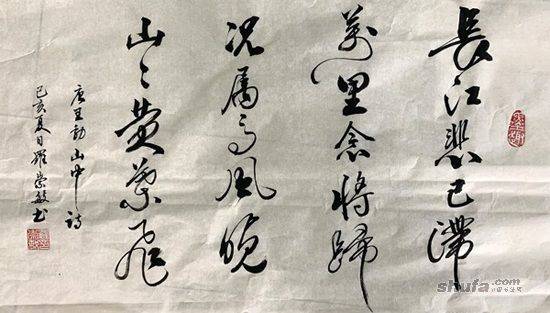 長江悲已滯
萬里念将歸
况屬高風晚
山々黄葉飛
唐王勃山中詩
己亥夏日羅崇敏书
shufa.com